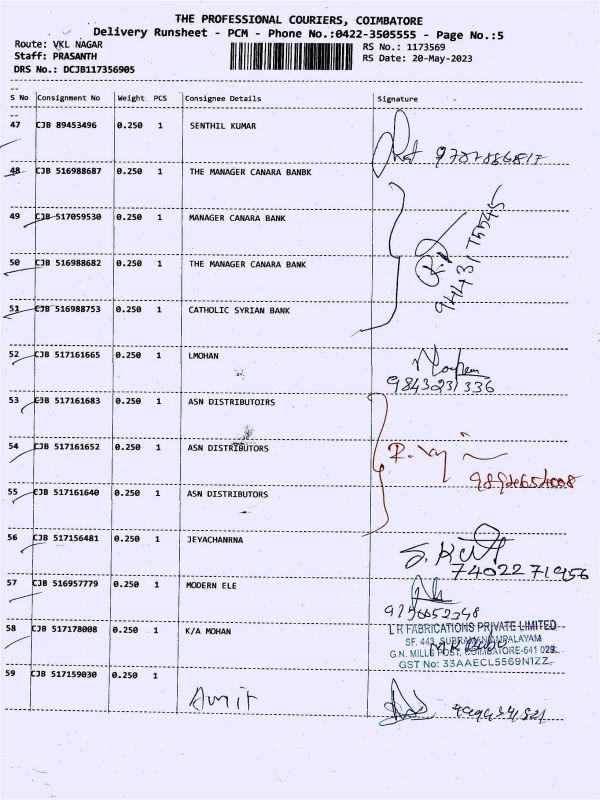 THE PROFESSIONAL COURIERS, COIMBATORE
Delivery Runsheet - PCM - Phone No.:0422-3505555 - Page No.:5
Route: VKL NAGAR
RS No.: 1173569
Staff: PRASANTH
RS Date: 20-May-2023
DRS No.: DCJB117356905
S No Consignment No Weight PCS Consignee Details Signature
47 CJB 89453496 0.250 1 SENTHIL KUMAR
48 CJB 516988687 0.250 1 THE MANAGER CANARA BANBK
49 CJB 517059530 0.250 1 MANAGER CANARA BANK
50 CJB 516988682 0.250 1 THE MANAGER CANARA BANK
51 CJB 516988753 0.250 1 CATHOLIC SYRIAN BANK
52 CJB 517161665 0.250 1 LMOHAN
9843231336
53 CJB 517161683 0.250 1 ASN DISTRIBUTOIRS
54 CJB 517161652 0.250 1 ASN DISTRIBUTORS
55 CJB 517161640 0.250 1 ASN DISTRIBUTORS
56 CJB 517156481 0.250 1 JEYACHANRNA
7402271956
57 CJB 516957779 0.250 1 MODERN ELE
58 CJB 517178008 0.250 1 K/A MOHAN
L R FABRICATIONS PRIVATE LIMITED
SF. 443, SUBRAMANIAMPALAYAM
G.N. MILLS POST, COIMBATORE-641 029.
GST No: 33AAECL5569N1ZZ
59 CJB 517159030 0.250 1 Amit